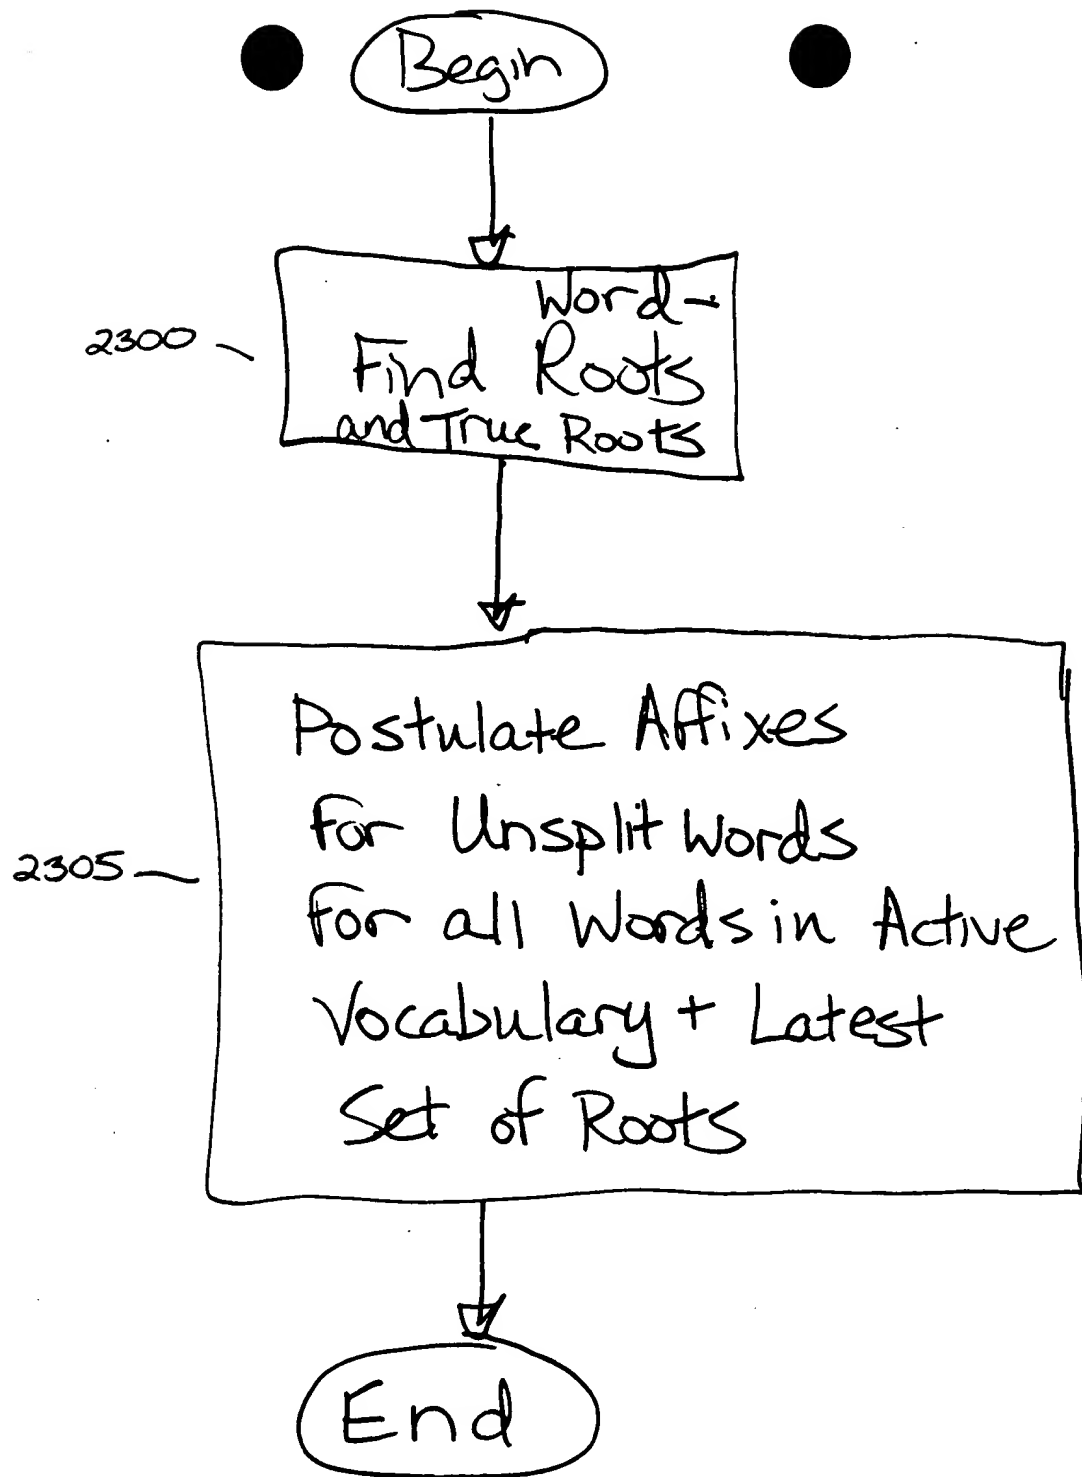 Begin
2300
Word-
Find Roots
and True Roots
2305
Postulate Affixes
for Unsplit Words
for all Words in Active
Vocabulary + Latest
Set of Roots
End